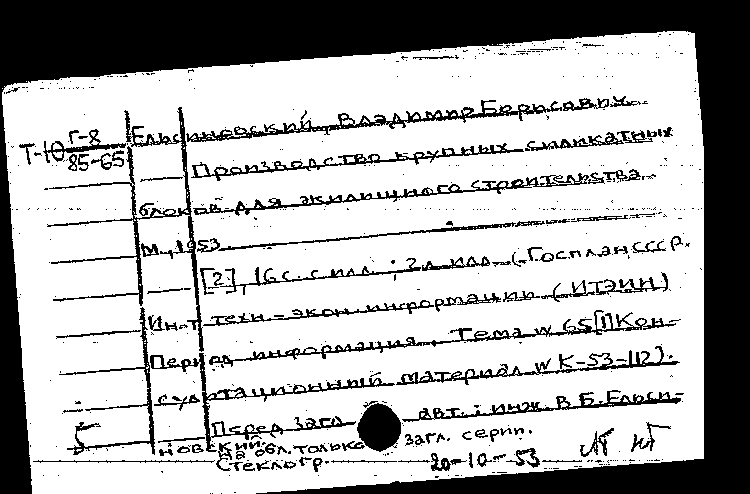 Т-Ю Г-8 Ельсиновский, Владимир Борисович.
85-65
Производство крупных силикатных
блоков для жилищного строительства.
М., 1953.
[2], 16 с. с илл. ; 2 л. илл. (Госплан СССР.
Ин-т техн.-экон. информации (ИТЭИН)
Период информация. Тема № 65[1] Кон-
сультационный материал № К-53-112).
Перед загл. авт.: инж. В.Б. Ельси-
новский.
На обл. только загл. серии.
Стеклогр.
20-10-53
5